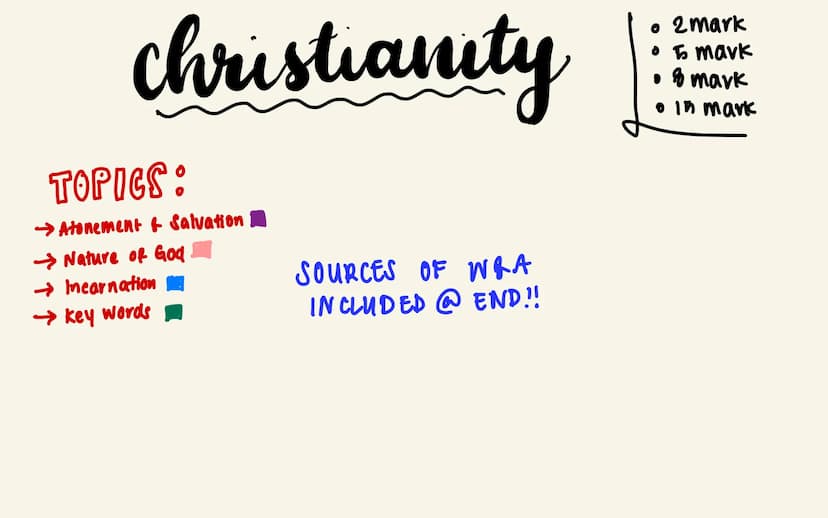 christianity
• 2 mark
• 5 mark
• 8 mark
• 15 mark
TOPICS:
→ Atonement & Salvation
→ Nature of God
→ Incarnation
→ Key Words
SOURCES OF WRA
INCLUDED @ END!!